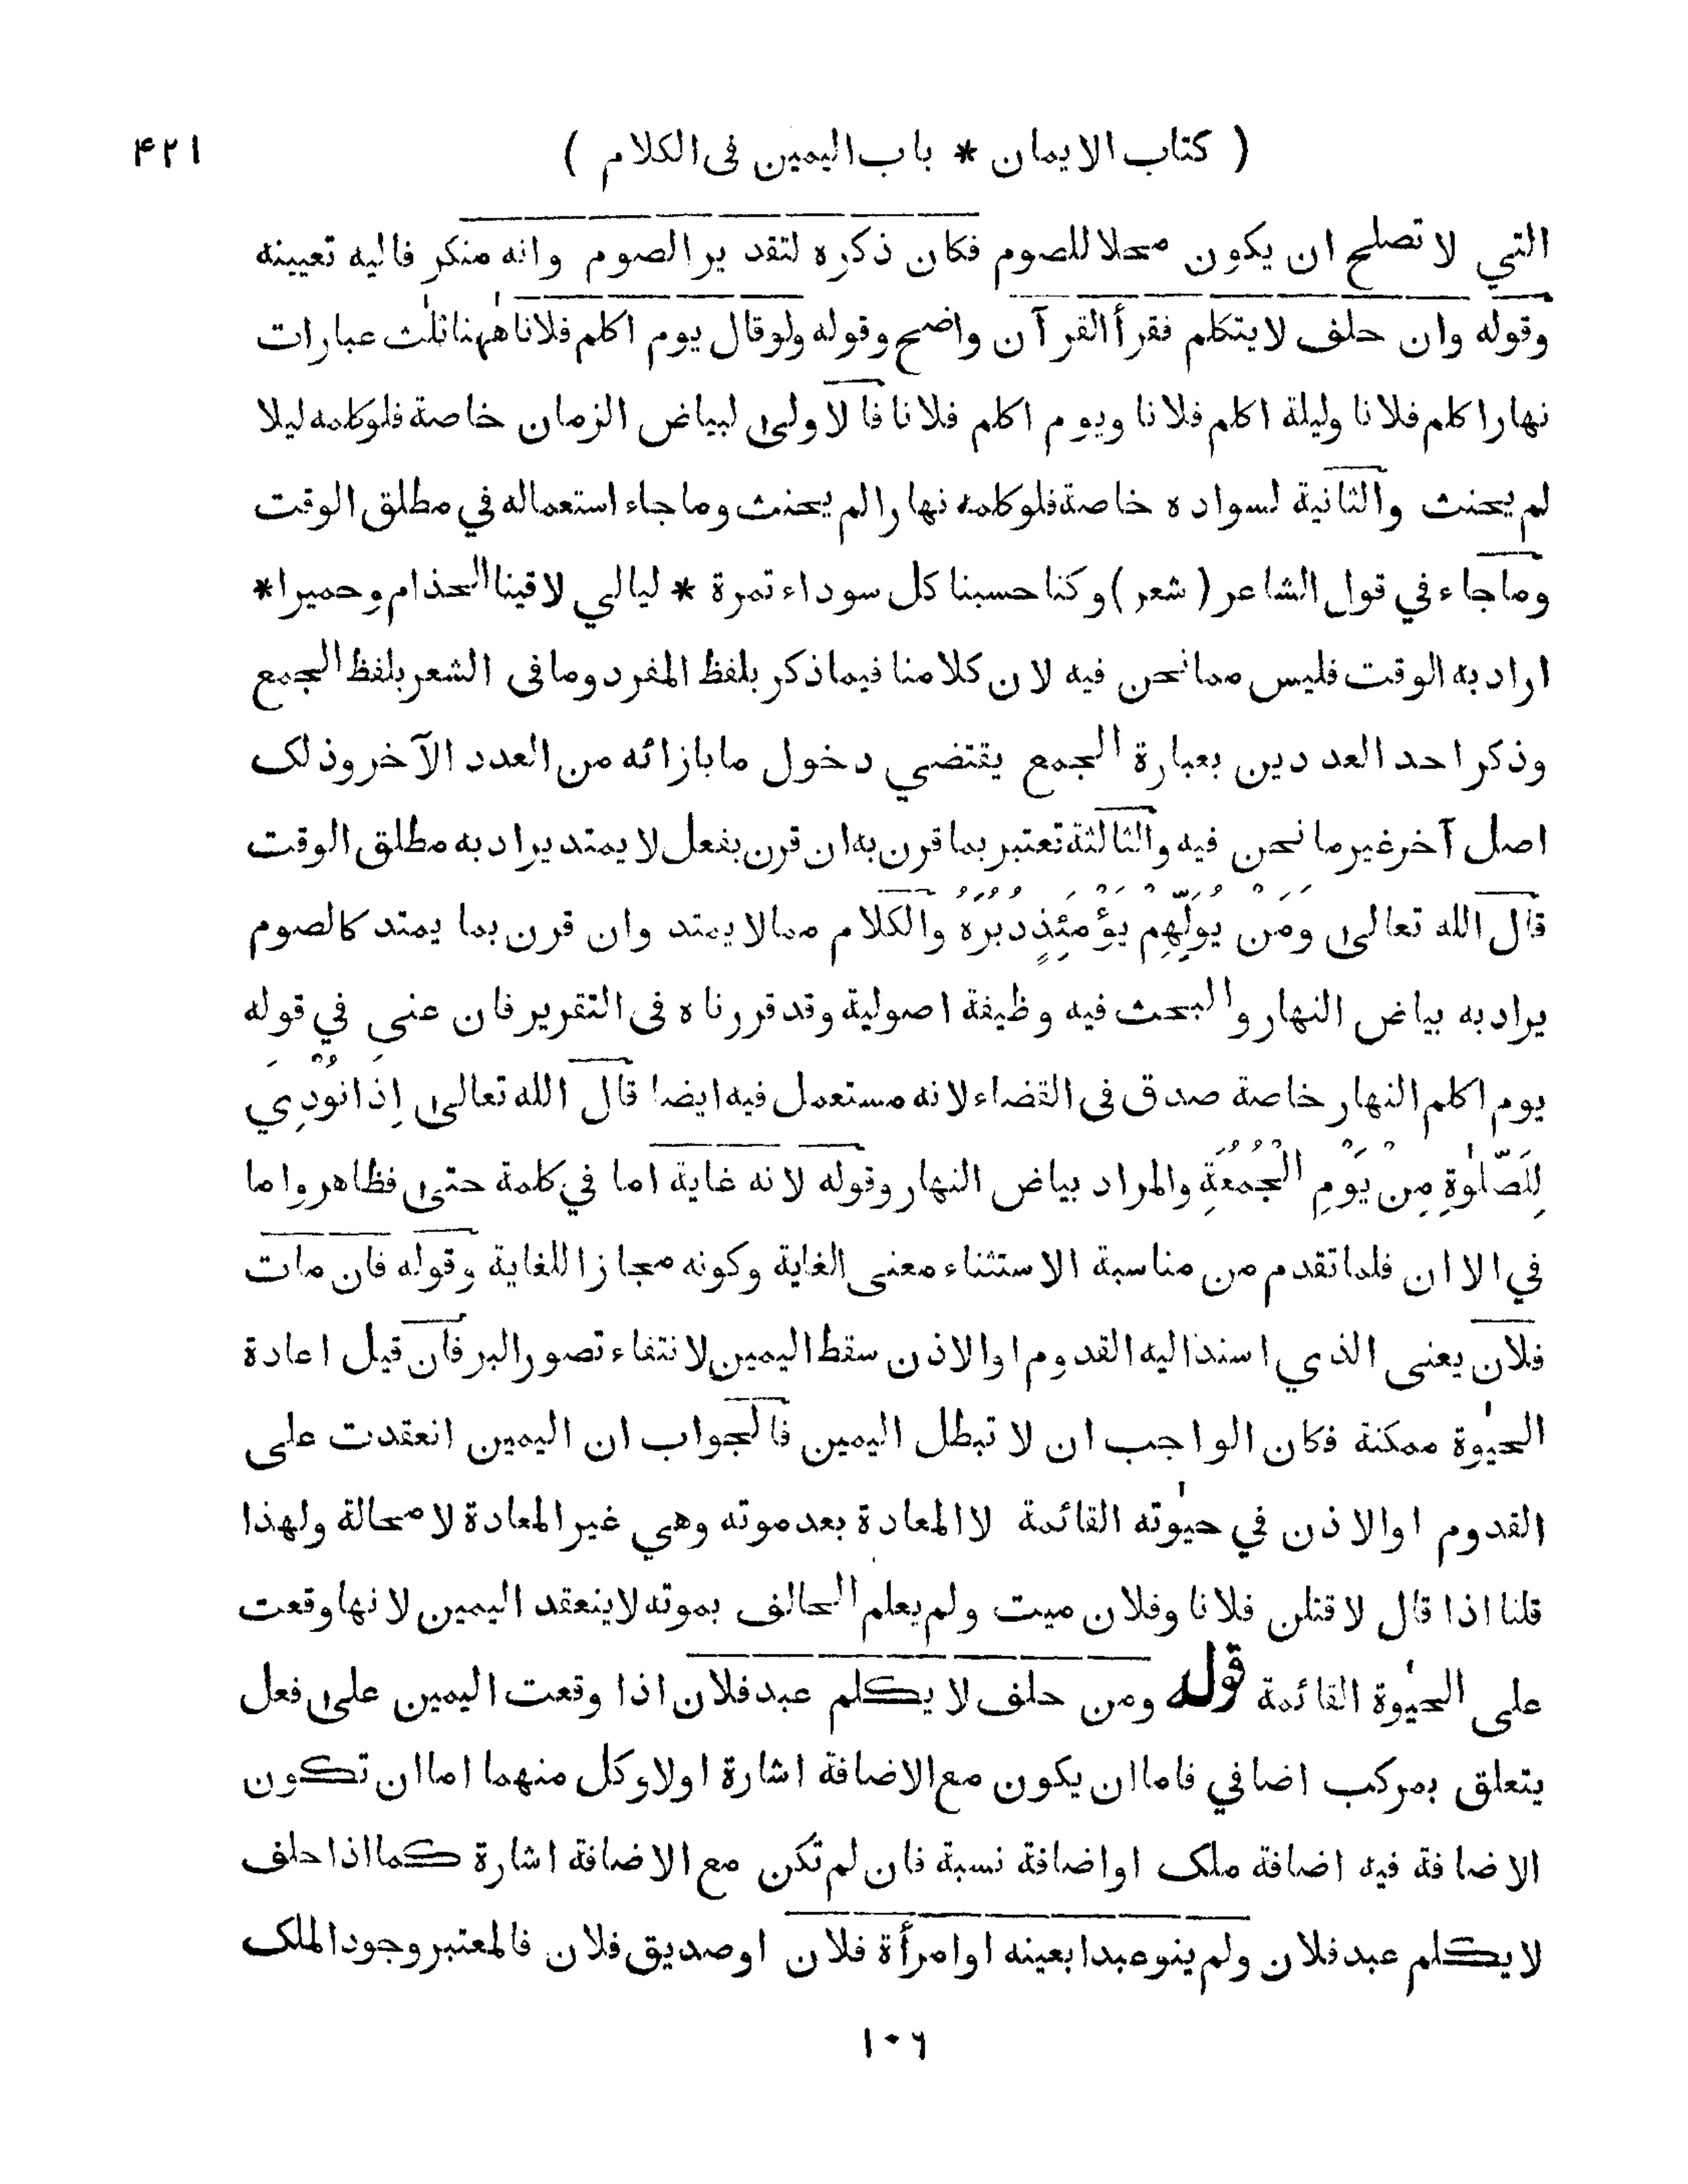 ( كتاب الايمان * باب اليمين فى الكلام ) ۴۲۱
التي لا تصلح ان يكون محلا للصوم فكان ذكره لتقدير الصوم وانه منكر فاليه تعيينه
وقوله وان حلف لا يتكلم فقرأ القرآن واضح وقوله ولو قال يوم اكلم فلانا هٰهنا ثلٰث عبارات
نهارا كلم فلانا وليلة اكلم فلانا ويوم اكلم فلانا فالاولىٰ لبياض الزمان خاصة فلو كلمه ليلا
لم يحنث والثانية لسواده خاصة فلو كلمه نهارا لم يحنث وما جاء استعماله في مطلق الوقت
وما جاء في قول الشاعر ( شعر ) وكنا حسبنا كل سوداء تمرة * ليالي لاقينا الجذام وحميرا *
اراد به الوقت فليس مما نحن فيه لان كلامنا فيما ذكر بلفظ المفرد وما فى الشعر بلفظ الجمع
وذكر احد العددين بعبارة الجمع يقتضي دخول ما بازائه من العدد الآخر وذلك
اصل آخر غير ما نحن فيه والثالثة تعتبر بما قرن به ان قرن بفعل لا يمتد يراد به مطلق الوقت
قال الله تعالىٰ وَمَنْ يُوَلِّهِمْ يَوْمَئِذٍ دُبُرَهُ والكلام مما لا يمتد وان قرن بما يمتد كالصوم
يراد به بياض النهار والبحث فيه وظيفة اصولية وقد قررناه فى التقرير فان عنى في قوله
يوم اكلم النهار خاصة صدق فى القضاء لانه مستعمل فيه ايضا قال الله تعالىٰ اِذَا نُوْدِيَ
لِلصَّلٰوةِ مِنْ يَوْمِ الْجُمُعَةِ والمراد بياض النهار وقوله لانه غاية اما في كلمة حتىٰ فظاهر واما
في الا ان فلما تقدم من مناسبة الاستثناء معنى الغاية وكونه مجازا للغاية وقوله فان مات
فلان يعنى الذي اسند اليه القدوم اوالاذن سقط اليمين لانتفاء تصور البر فان قيل اعادة
الحيٰوة ممكنة فكان الواجب ان لا تبطل اليمين فالجواب ان اليمين انعقدت على
القدوم اوالاذن في حيٰوته القائمة لا المعادة بعد موته وهي غير المعادة لا محالة ولهذا
قلنا اذا قال لاقتلن فلانا وفلان ميت ولم يعلم الحالف بموته لا ينعقد اليمين لانها وقعت
على الحيٰوة القائمة قوله ومن حلف لا يكلم عبد فلان اذا وقعت اليمين علىٰ فعل
يتعلق بمركب اضافي فاما ان يكون مع الاضافة اشارة اولا وكل منهما اما ان تكون
الاضافة فيه اضافة ملك او اضافة نسبة فان لم تكن مع الاضافة اشارة كما اذا حلف
لا يكلم عبد فلان ولم ينو عبدا بعينه او امرأة فلان او صديق فلان فالمعتبر وجود الملك
۱۰۶